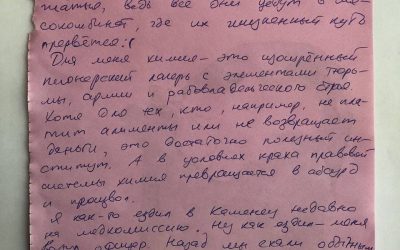 ведь все они уедут в мя-
сокомбинат, где их жизненный путь
прервётся:(
Для меня химия – это изощрённый
пионерский лагерь с элементами тюрь-
мы, армии и рабовладельческого строя.
Хотя для тех, кто, например, не пла-
тит алименты или не возвращает
деньги, это достаточно полезный ин-
ститут. А в условиях краха правовой
системы химия превращается в абсурд
и произвол.
Я как-то ездил в Каменец недавно
на медкомиссию. Ну как ездил – меня
офицер. Назад мы ехали